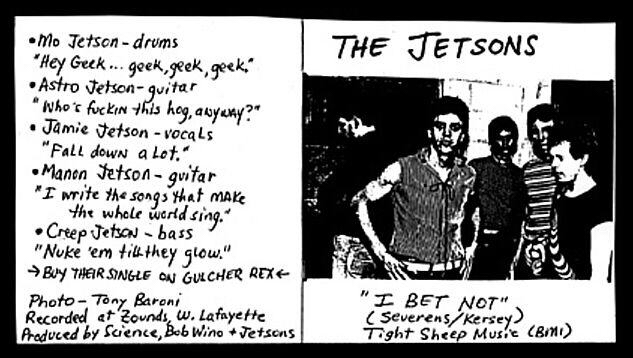 • Mo Jetson - drums
"Hey Geek... geek, geek, geek."
• Astro Jetson - guitar
"Who's fuckin this hog, anyway?"
• Jamie Jetson - vocals
"Fall down a lot."
• Manon Jetson - guitar
"I write the songs that make
the whole world sing."
• Creep Jetson - bass
"Nuke 'em till they glow."
→ BUY THEIR SINGLE ON GULCHER REX ←
Photo - Tony Baroni
Recorded at Zounds, W. Lafayette
Produced by Science, Bob Wino + Jetsons
THE JETSONS
"I BET NOT"
(Severens/Kersey)
Tight Sheep Music (BMI)